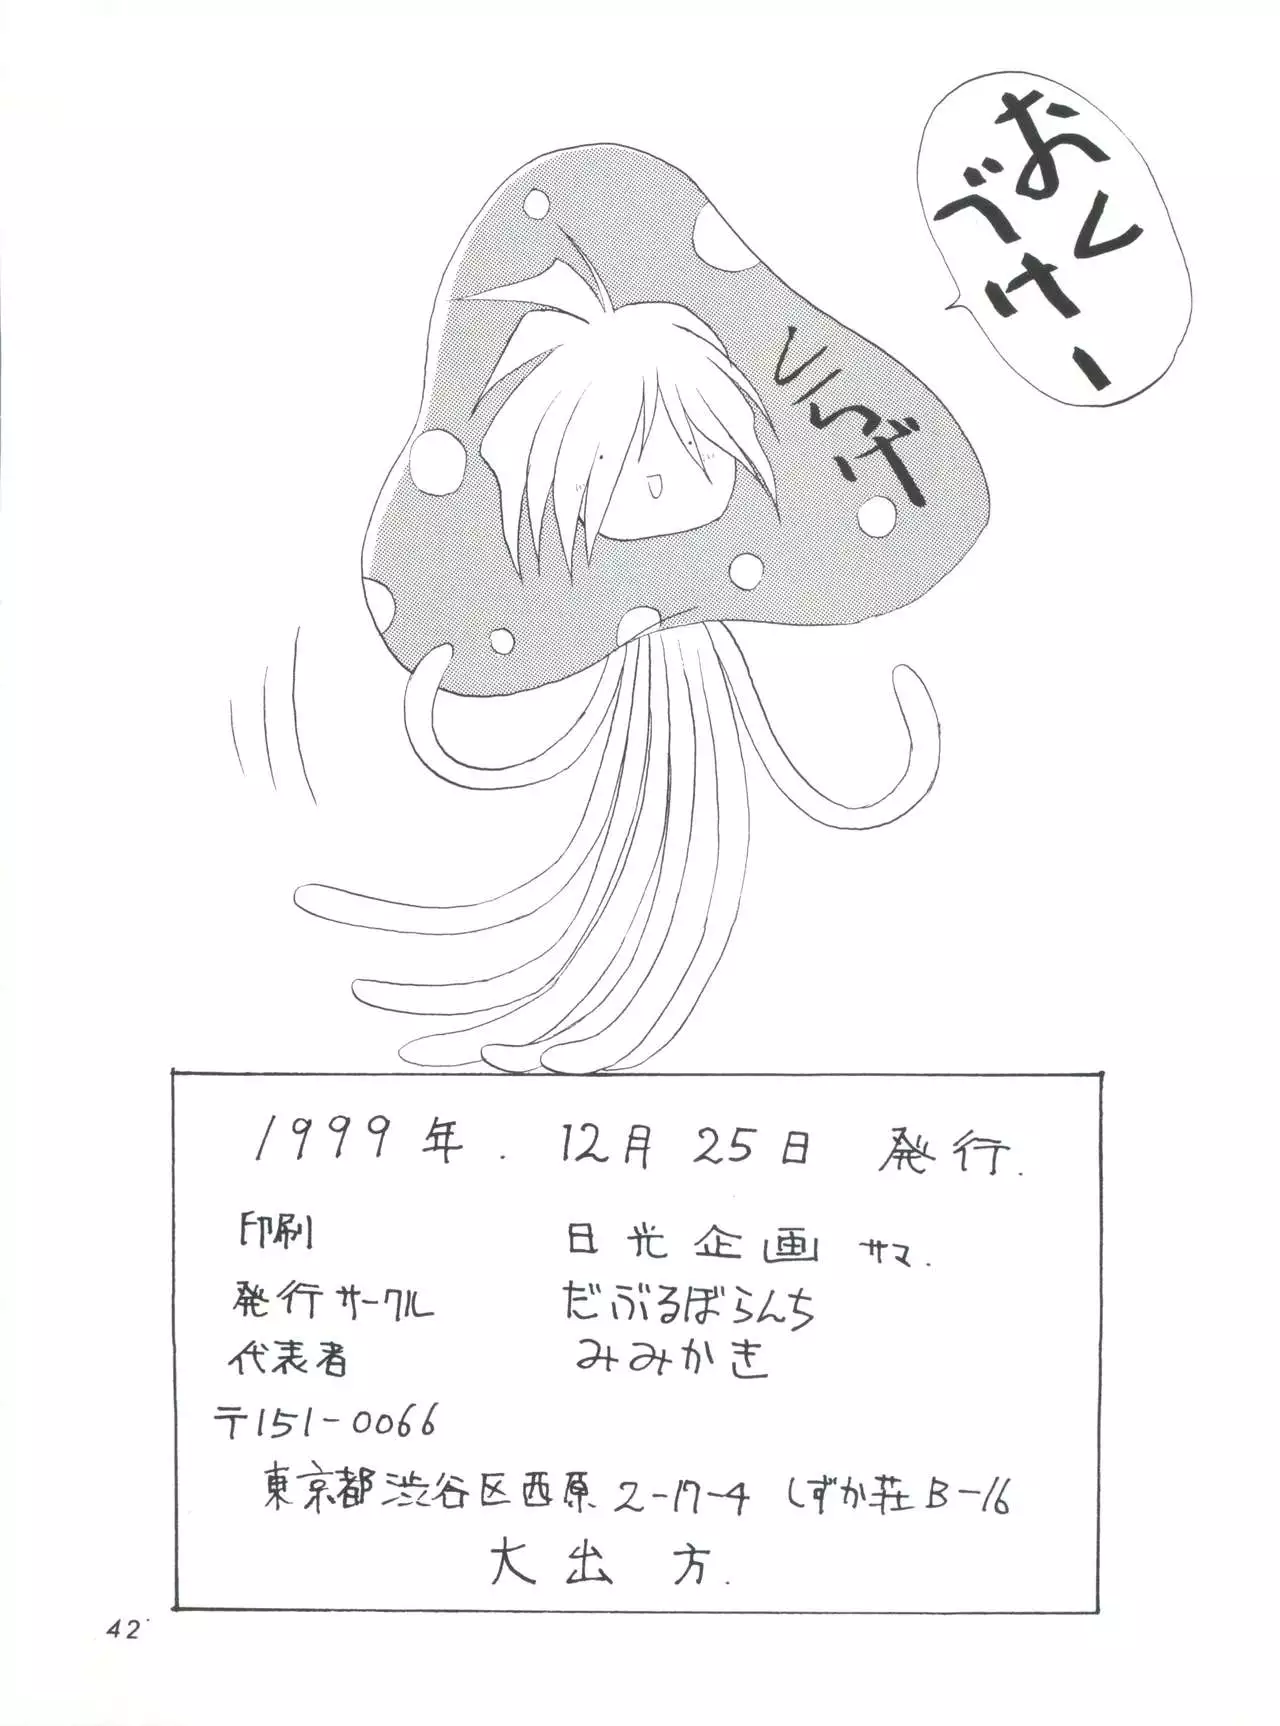 おくづけー
しいげ
1999年. 12月25日 発行.
印刷 日光企画 サマ.
発行サークル だぶるぼらんち
代表者 みみかき
〒151-0066
東京都渋谷区西原2-17-4 しずか荘B-16
大出 方.
42